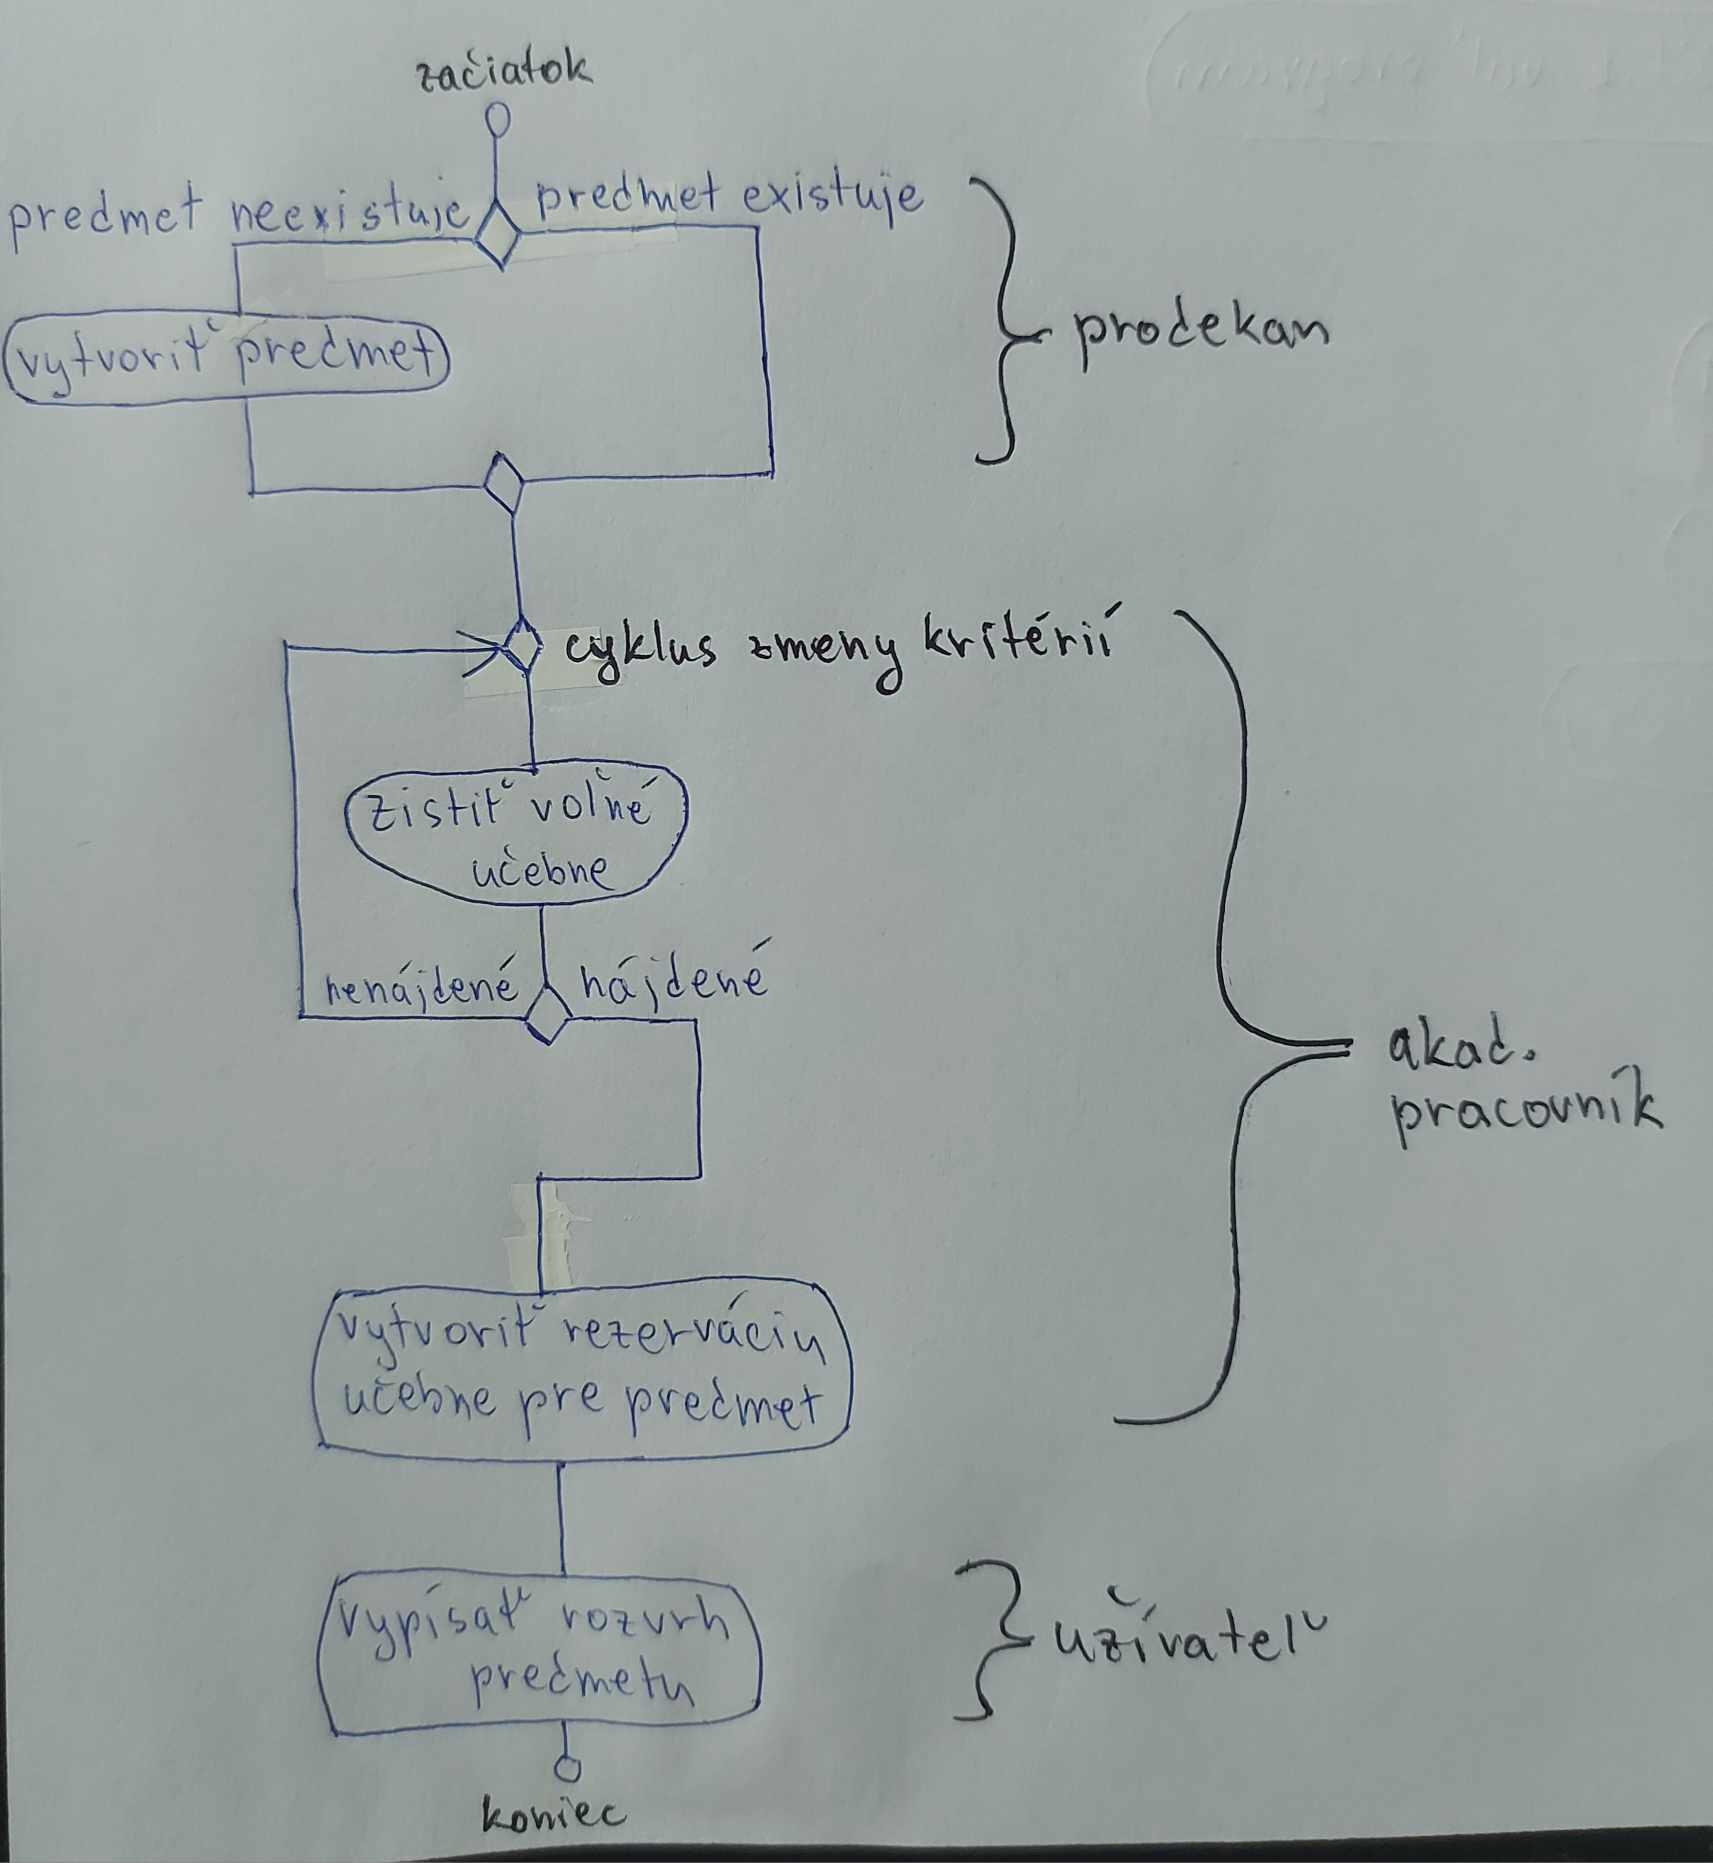 začiatok
predmet neexistuje
predmet existuje
vytvoriť predmet
prodekan
cyklus zmeny kritérií
zistiť voľné
učebne
nenájdené
nájdené
akad.
pracovník
vytvoriť rezerváciu
učebne pre predmet
vypísať rozvrh
predmetu
užívateľ
koniec